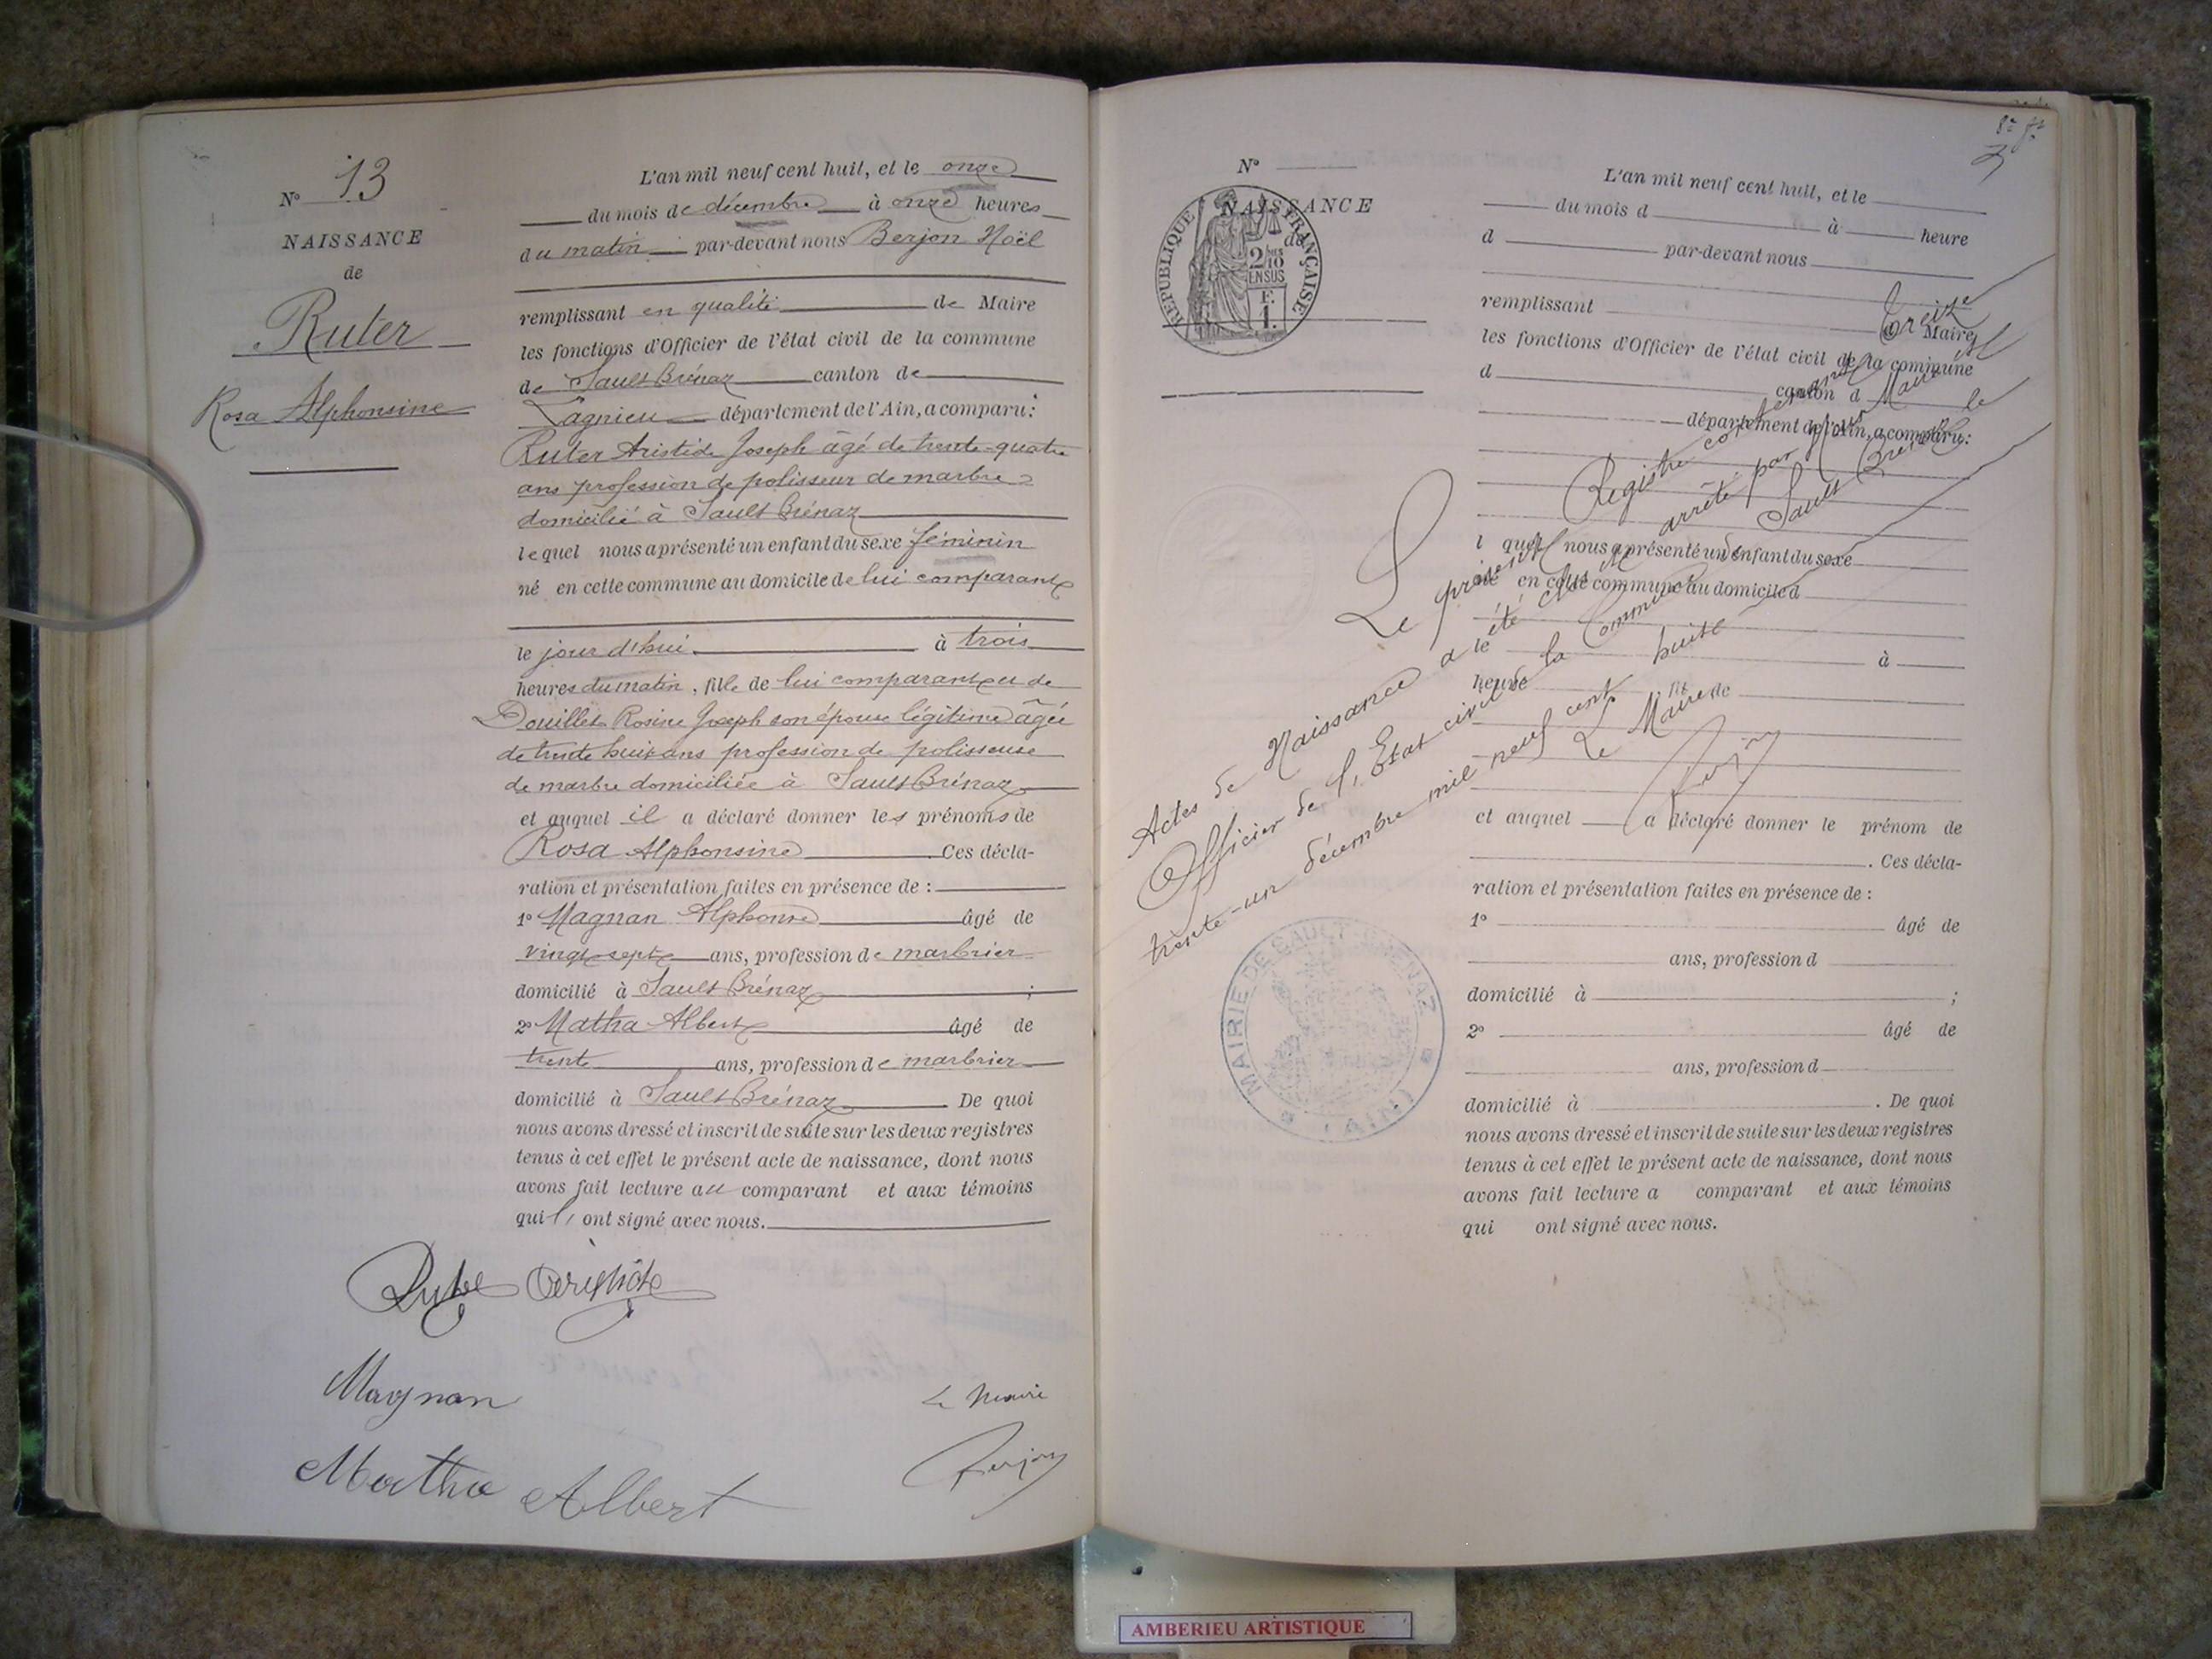 N° 13
NAISSANCE
de
Ruter
Rosa Alphonsine
L'an mil neuf cent huit, et le onze
du mois de décembre à onze heures
du matin par-devant nous Berjon Noël
remplissant en qualité de Maire
les fonctions d'Officier de l'état civil de la commune
de Sault Brénaz canton de
Lagnieu département de l'Ain, a comparu:
Ruter Aristide Joseph âgé de trente-quatre
ans profession de polisseur de marbre
domicilié à Sault Brénaz
lequel nous a présenté un enfant du sexe féminin
né en cette commune au domicile de lui comparant
le jour d'hui à trois
heures du matin, fille de lui comparant et de
Douillet Rosine Joseph son épouse légitime âgée
de trente huit ans profession de polisseuse
de marbre domiciliée à Sault Brénaz
et auquel il a déclaré donner les prénoms de
Rosa Alphonsine Ces décla-
ration et présentation faites en présence de :
1° Magnan Alphonse âgé de
vingt-sept ans, profession de marbrier
domicilié à Sault Brénaz ;
2° Matha Albert âgé de
trente ans, profession de marbrier
domicilié à Sault Brénaz De quoi
nous avons dressé et inscrit de suite sur les deux registres
tenus à cet effet le présent acte de naissance, dont nous
avons fait lecture au comparant et aux témoins
qui ont signé avec nous.
Ruter Aristide
Magnan
Le Maire
Matha Albert
Berjon
N°
NAISSANCE
de
RÉPUBLIQUE FRANÇAISE
2/10
EN SUS
F.
1.
L'an mil neuf cent huit, et le
du mois d à heure
d par-devant nous
remplissant d Maire
les fonctions d'Officier de l'état civil de la commune
d canton d
département de l'Ain, a comparu:
l quel nous a présenté un enfant du sexe
né en cette commune au domicile d
le à
heure fil de
et auquel a déclaré donner le prénom de
. Ces décla-
ration et présentation faites en présence de :
1° âgé de
ans, profession d
domicilié à ;
2° âgé de
ans, profession d
domicilié à . De quoi
nous avons dressé et inscrit de suite sur les deux registres
tenus à cet effet le présent acte de naissance, dont nous
avons fait lecture a comparant et aux témoins
qui ont signé avec nous.
Le présent Registre contenant treize
Actes de Naissance a été clos et arrêté par Nous Maire
Officier de l'Etat civil de la Commune de Sault Brénaz le
trente-un décembre mil neuf cent huit
Le Maire
Berjon
MAIRIE DE SAULT-BRENAZ
(AIN)
AMBERIEU ARTISTIQUE